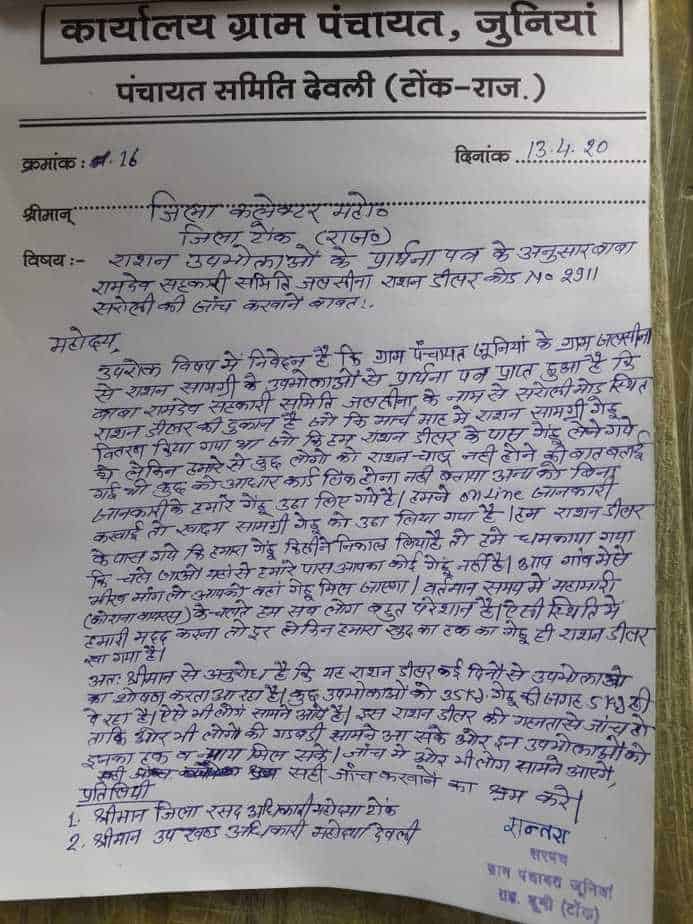 कार्यालय ग्राम पंचायत, जुनियां
पंचायत समिति देवली (टोंक-राज.)
क्रमांक : 16
दिनांक 13.4.20
श्रीमान् जिला कलेक्टर महो०
जिला टोंक (राज०)
विषय :- राशन उपभोक्ताओं के प्रार्थना पत्र के अनुसार बाबा
रामदेव सहकारी समिति जलसीना राशन डीलर कोड No 2911
सरोली की जांच करवाने बाबत।
महोदय,
उपरोक्त विषय में निवेदन है कि ग्राम पंचायत जूनियां के ग्राम जलसीना
से राशन सामग्री के उपभोक्ताओं से प्रार्थना पत्र प्राप्त हुआ है कि
बाबा रामदेव सहकारी समिति जलसीना के नाम से सरोली मोड स्थित
राशन डीलर की दुकान है जो कि मार्च माह में राशन सामग्री गेहू
वितरण किया गया था जो कि हम राशन डीलर के पास गेहू लेने गये
थे लेकिन हमारे से कुछ लोगो को राशन चालू नही होने की बात बताई
गई थी कुछ को आधार कार्ड लिंक होना नही बताया अन्य को बिना
जानकारी के हमारे गेहू उठा लिए गये है। हमने online जानकारी
करवाई तो खाद्य सामग्री गेहू को उठा लिया गया है। हम राशन डीलर
के पास गये कि हमारा गेहू किसने निकाल लिया है तो हमे धमकाया गया
कि चले जाओ यहां से हमारे पास आपका कोई गेहू नहीं है। आप गांव मेसे
भीख मांग लो आपको वहां गेहू मिल जाएगा। वर्तमान समय मे महामारी
(कोराना वायरस) के चलते हम सब लोग बहुत परेशान है। ऐसी स्थिति मे
हमारी मदद करना तो दूर लेकिन हमारा खुद का हक का गेहू ही राशन डीलर
खा गया है।
अतः श्रीमान से अनुरोध है कि यह राशन डीलर कई दिनों से उपभोक्ताओ
का शोषण करता आ रहा है। कुछ उपभोक्ताओं को 35Kg. गेहू की जगह 5 Kg ही
दे रहा है। ऐसे भी लोग सामने आये है। इस राशन डीलर की गहनता से जांच हो
ताकि और भी लोगो की गडबडी सामने आ सके और इन उपभोक्ताओं को
इनका हक व न्याय मिल सके। जांच मे और भी लोग सामने आएगे,
सही जाँच करवाने का श्रम करे।
प्रतिलिपी
1. श्रीमान जिला रसद अधिकारी महोदया टोंक
2. श्रीमान उप खण्ड अधिकारी महोदया देवली
सन्तरा
सरपंच
ग्राम पंचायत जूनियां
(टोंक)